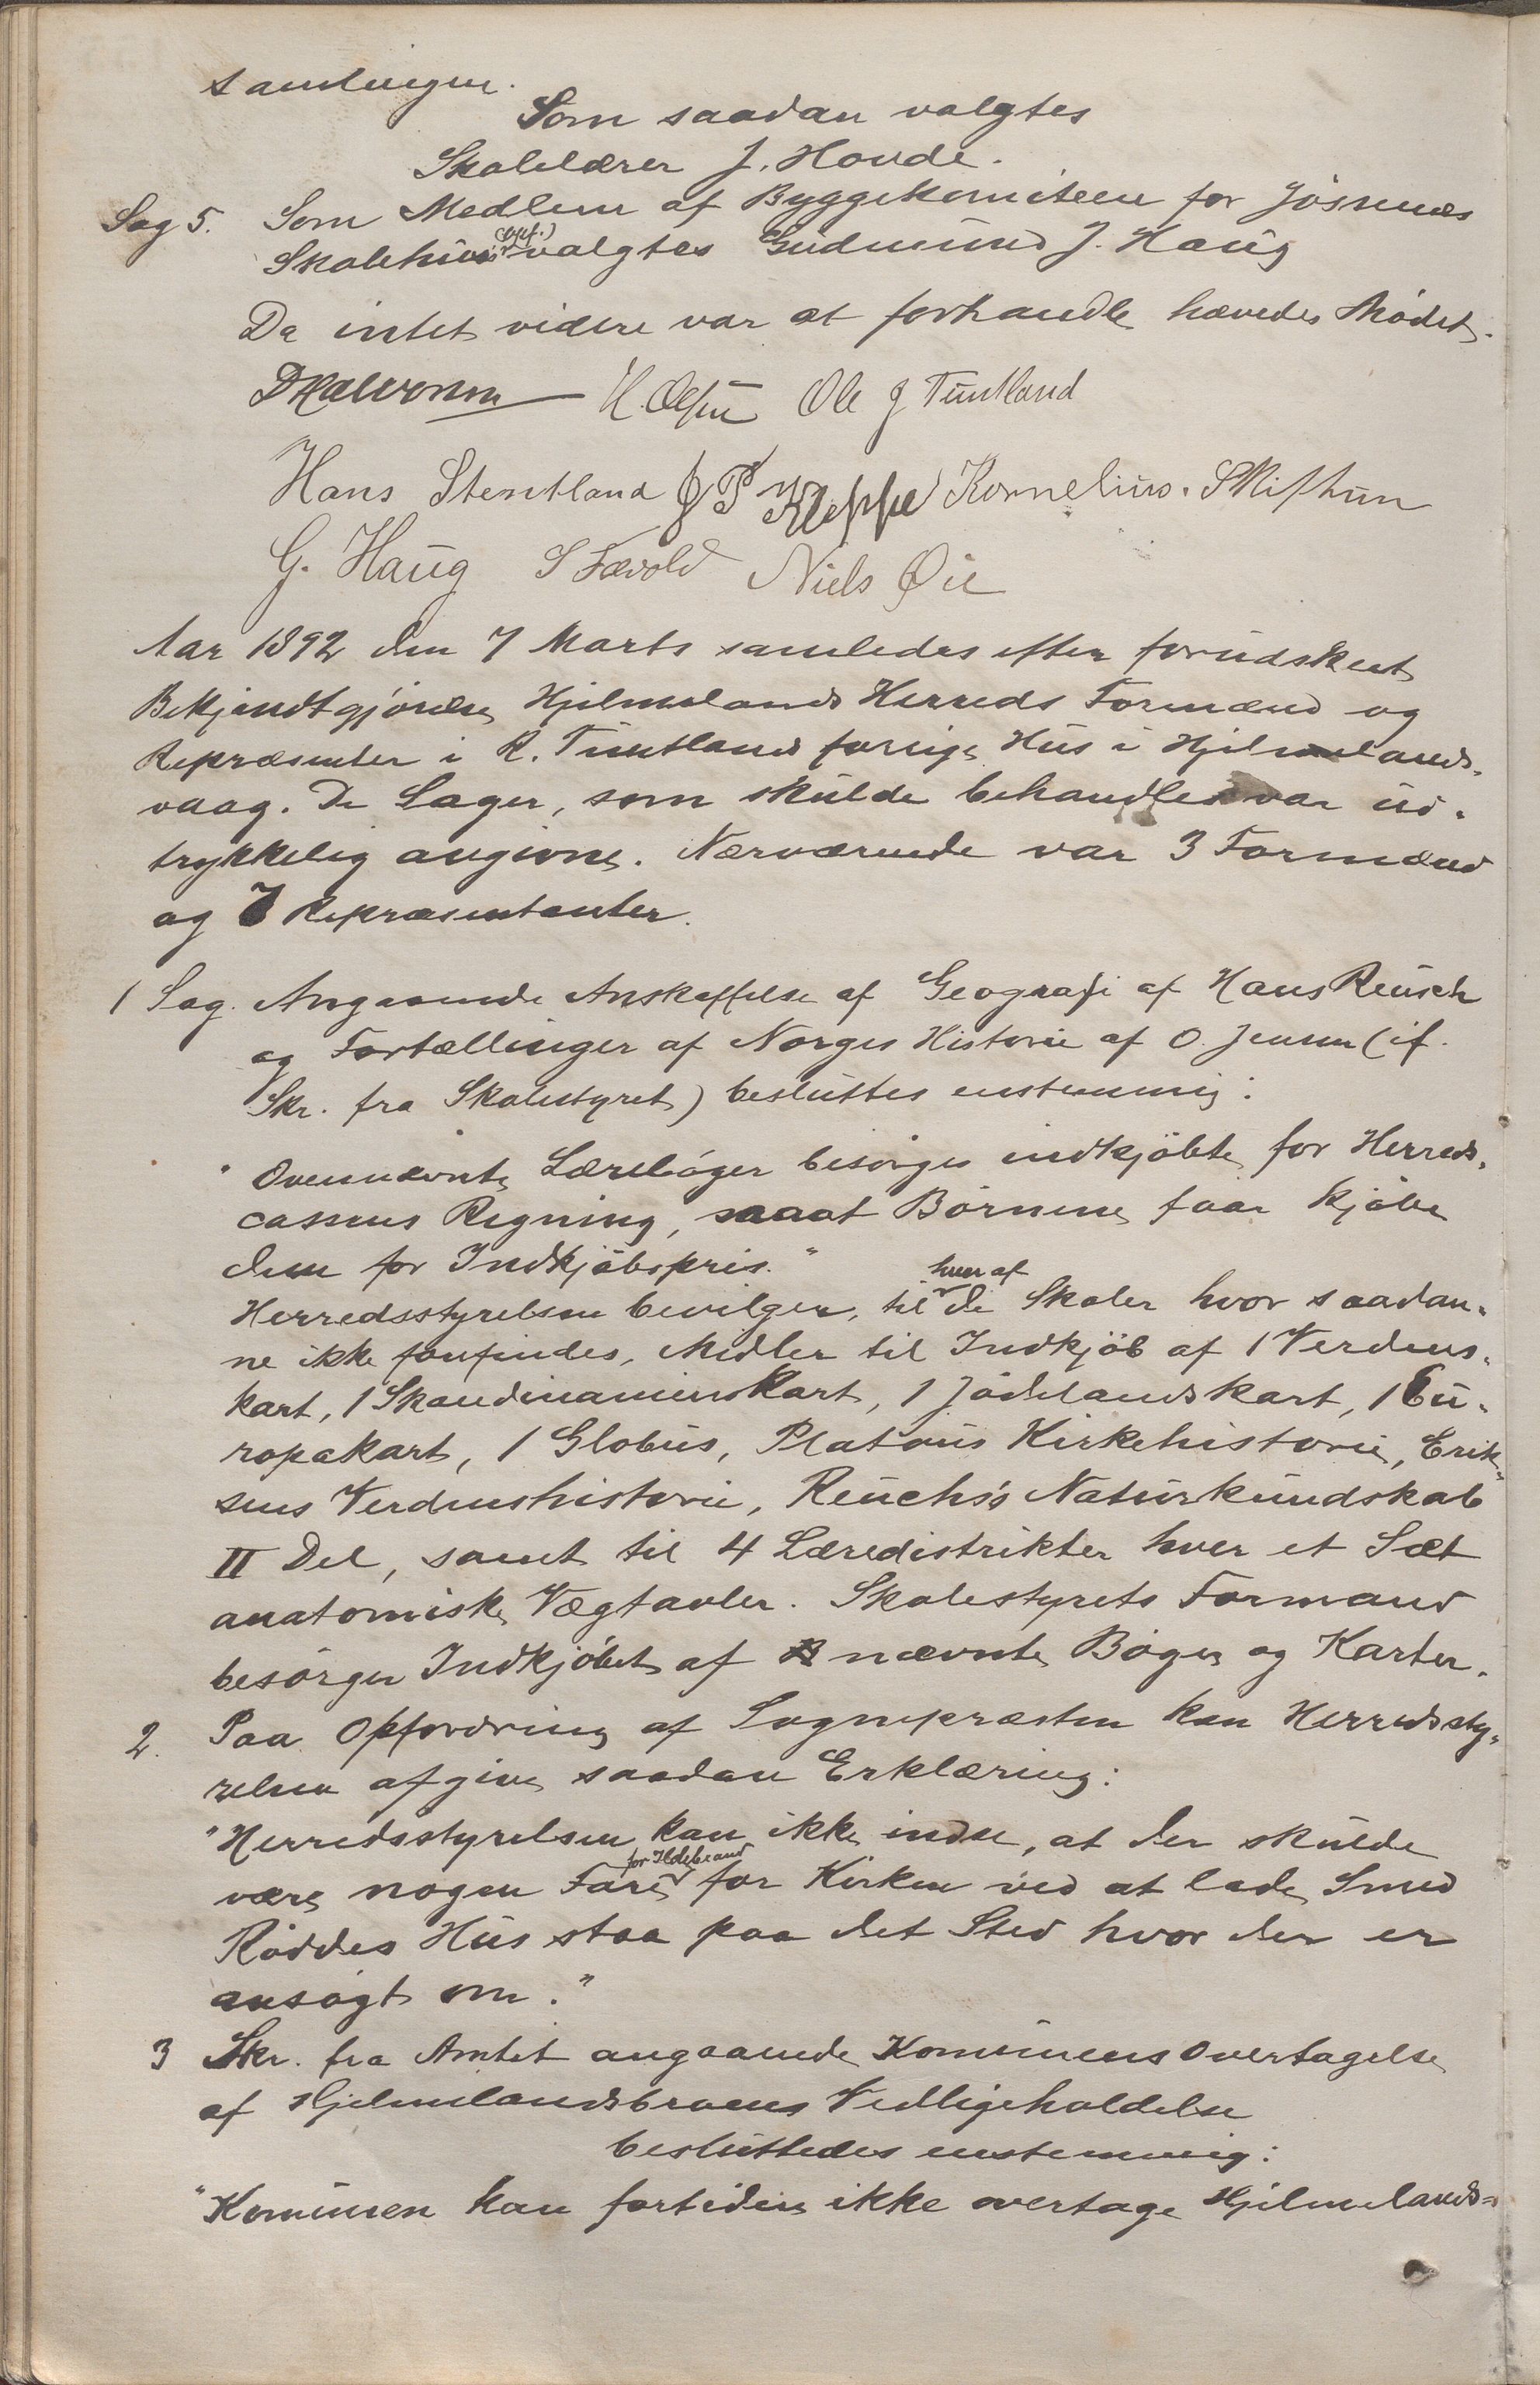 samlingen.
Som saadan valgtes
Skolelærer J. Hovde.
Sag 5. Som Medlem af Byggekomiteen for Jøsenes
Skolehus valgtes Gudmund J. Haug
Da intet videre var at forhandle hævedes Mødet.
DHalvorsen H. Olsen Ole J Tuntland
Hans Stentland J P Kleppe Kornelius. Skiftun
G. Haug S Fævold Niels Øie
Aar 1892 den 7 Marts samledes efter forudskeet
Bekjendtgjørelse Hjelmelands Herreds Formænd og
Repræsenter i R. Tuntlands forrige Hus i Hjelmelands-
vaag. De Sager, som skulde behandles var ud-
trykkelig angivne. Nærværende var 3 Formænd
og 7 Repræsentanter.
1 Sag. Angaaende Anskaffelse af Geografi af Hans Reusch
og Fortællinger af Norges Historie af O. Jensen (if.
Skr. fra Skolestyret) besluttes enstemmig:
"Ovennævnte Lærebøger besørges indkjøbte for Herreds-
cassens Regning, saaat Børnene faar kjøbe
dem for Indkjøbspris."
Herredsstyrelsen bevilger, til hver af de Skoler hvor saadan-
ne ikke forefindes, Midler til Indkjøb af 1 Verdens-
kart, 1 Skandinavienskart, 1 Jødelandskart, 1 Eu-
ropakart, 1 Globus, Platous Kirkehistorie, Erik-
sens Verdenshistorie, Reuchs's Naturkundskab
II Del, samt til 4 Læredistrikter hver et Sæt
anatomiske Vægtavler. Skolestyrets Formand
besørger Indkjøbet af nævnte Bøger og Karter.
2. Paa Opfordring af Sognepræsten kan Herredssty-
relsen afgive saadan Erklæring:
"Herredsstyrelsen kan ikke indse, at der skulde
være nogen Fare for Ildebrand for Kirken ved at lade Smed
Røddes Hus staa paa det Sted hvor der er
ansøgt om."
3 Skr. fra Amtet angaaende Kommunens Overtagelse
af Hjelmelandsbroens Vedligeholdelse
besluttedes enstemmig:
"Kommunen kan fortiden ikke overtage Hjelmelands-